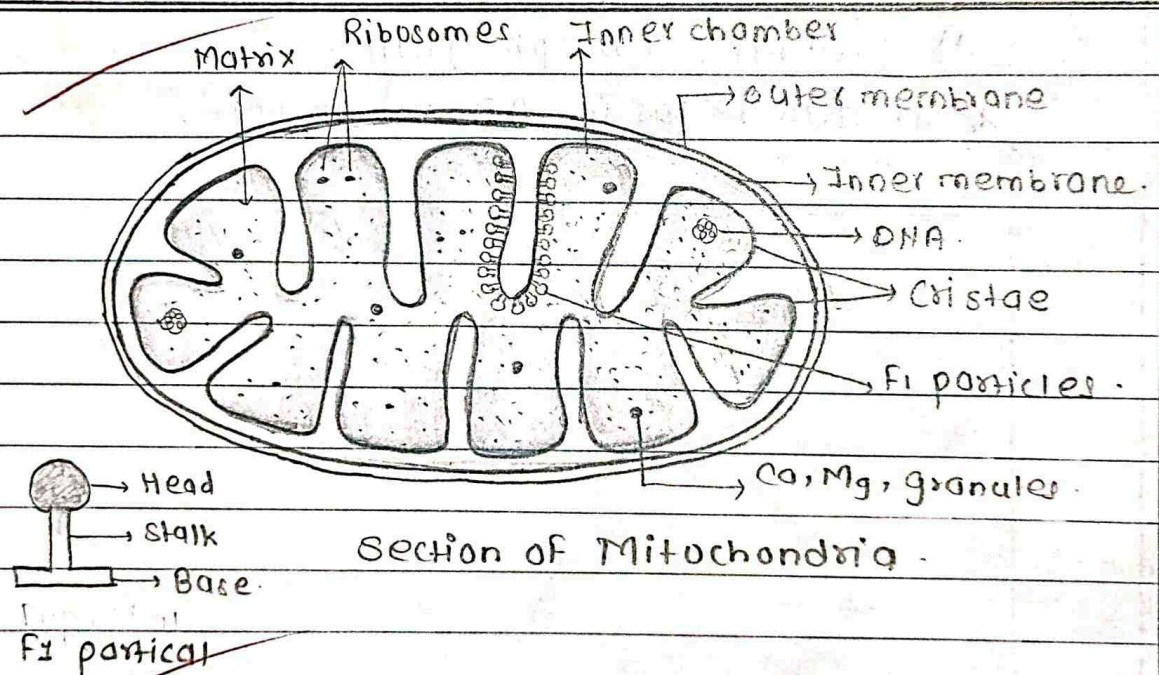 Ribosomes
Inner chamber
Matrix
outer membrane
Inner membrane.
DNA.
Cristae
F1 particles.
Ca, Mg, granules.
Head
Stalk
Section of Mitochondria.
Base.
F1 partical